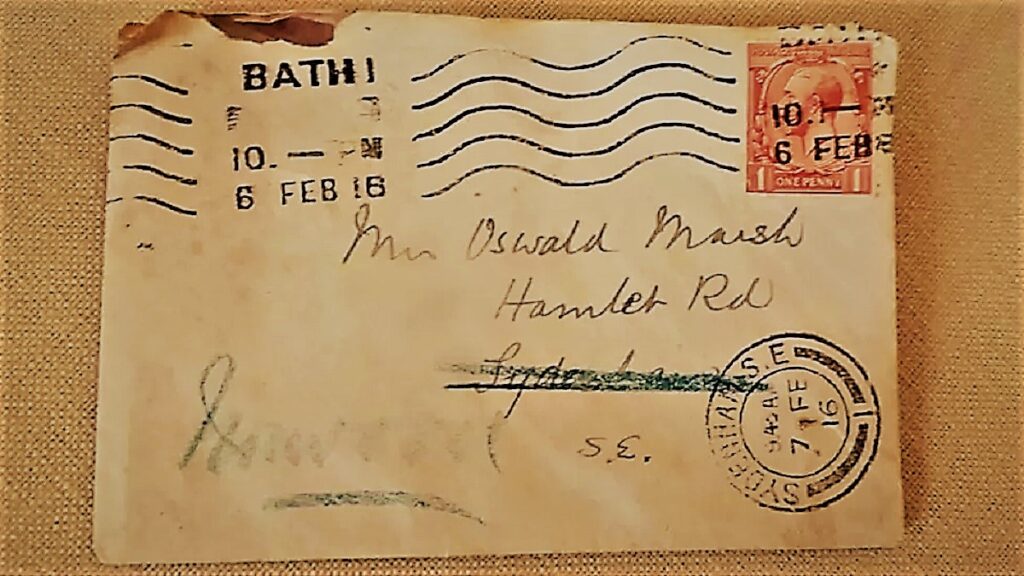 BATH
10. — PM
6 FEB 16
10. —
6 FEB
ONE PENNY
Oswald Marsh
Hamlet Rd
Sydenham
S.E.
SYDENHAM. S.E
7 FE
16